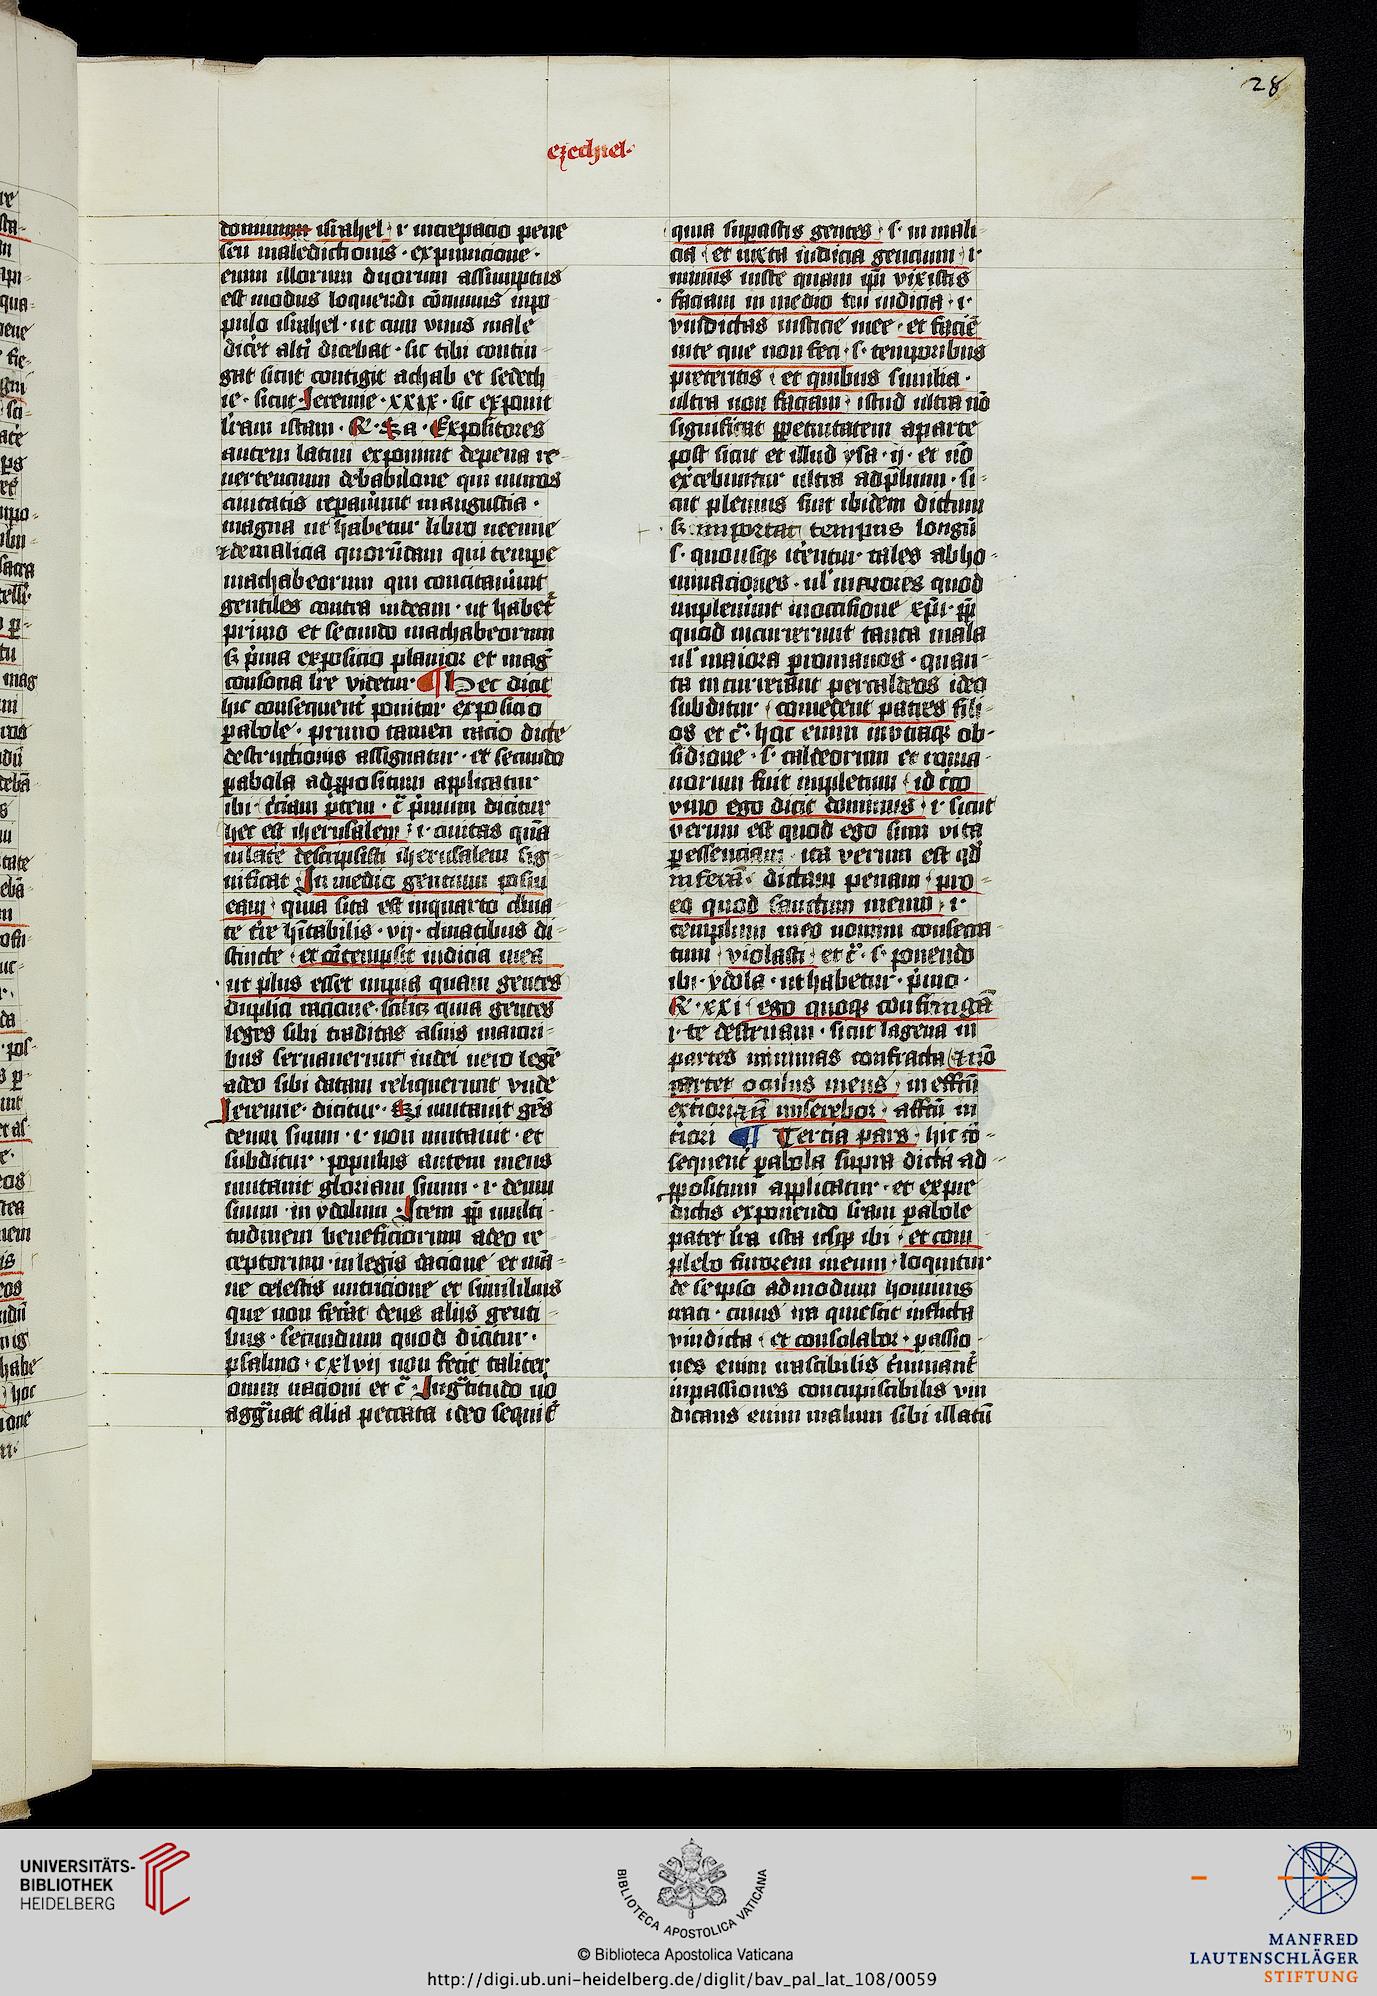 28
ezechiel·
domum israhel · i· increpacio pene
seu maledictionis · expunicione ·
enim illorum duorum assumptus
est modus loquendi cōmunis inpo
pulo israhel · ut cum vnus male
dicēt alti dicebat · sic tibi contin
gat sicut contigit achab et sedech
ie · sicut Jeremie · xxix · sic exponit
lr̄am istam · R · Sa · Expositores
autem latini exponunt depena re
uertencium debabilone qui muros
ciuitatis repauūnt inangustia ·
magna ut habetur libro neemie
demalicia quorūdam qui tempe
machabeorum qui concitauūnt
gentiles contra iudeam · ut habet̄
primo et secundo machabeorum
s; p̄ma exposicio planior et maḡ
consona lr̄e videtur · ¶ Hec dicit
hic consequent̄ ponitur exposicio
pabole · primo tamen racio dicte
destructionis assignatur · et secundo
pabola adpositum applicatur
ibi · t̄ciam p̄tem · c̄ p̄mum dicitur
hec est iherusalem · i· ciuitas quā
inlate descripsisti iherusalem sig
nificat · In medio gentium posui
eam · quia sita est inquarto clima
te t̄re hītabilis · vij · climatibus di
stincte · et cōtempsit iudicia mea
ut plus esset impia quam gentes
duplici racione · scilicz quia gentes
leges sibi traditas asuis maiori
bus seruauerunt iudei uero legē
adeo sibi datam reliquerunt vnde
Jeremie · dicitur · Si mutauit gēs
deum suum · i· non mutauit · et
subditur · populus autem meus
mutauit gloriam suam · i· deum
suum · in ydolum · Item pp̄ multi
tudinem beneficiorum adeo re
ceptorum · in legis dacione et mā
ne celestis nutricione et similibus
que non fecāt deus alijs genti
bus · secundum quod dicitur ·
psalmo · cxlvij non fecit taliter
omni nacioni et c̄ · Ingratitudo uō
aggᵃuat alia peccata ideo sequit̄
quia supastis gentes · s· in mali
cia · et iuxta iudicia gencium · i·
minus iuste quam ip̄i vixistis
faciam in medio tui iudicia · i·
vindictas iusticie mee · et faciē
inte que non feci · s· temporibus
preteritis · et quibus similia ·
ultra non faciam · istud ultra nō
significat ppetuitatem aparte
post sicut et illud ysa · ij · et nō
exc̄ebuntur ultra adp̄lium · si
cut plenius fuit ibidem dictum
s; importat tempus longū
s· quousq; it̄entur tales abho
minaciones · ul' maiores quod
impleuūnt inoccisione xp̄i · pp̄
quod incurrerunt tanta mala
ul' maiora promanos · quan
ta incurrerant percaldeos ideo
subditur · comedent patres fili
os et c̄ · hoc enim inutraq; ob
sidione · s· caldeorum et roma
norum fuit impletum · id c̄co
viuo ego dicit dominus · i· sicut
verum est quod ego sum vita
pessenciam · ita verum est qd̄
inferā · dictam penam · pro
eo quod sanctum meum · i·
templum meo nomini consecra
tum · violasti · et c̄ · s· ponendo
ibi · ydola · ut habetur · p̄mo ·
R · xxi · ego quoq; confringā
i· te destruam · sicut lagena in
partes minimas confracta · et nō
parcet oculus meus · in effc̄u
exc̄iori · et n̄ miserebor · affc̄u in
t̄iori ¶ Tercia pars · hic cō
sequent̄ pabola supra dicta ad
ppositum applicatur · et expre
dictis exponendo lr̄am pabole
patet lr̄a ista usq; ibi · et com
plebo furorem meum · loquitur
de seipso admodum hominis
irati · cuius ira quiescit inflicta
vindicta · et consolabor · passio
nes enim irascibilis t̄minant̄
inpassiones concupiscibilis vin
dicans enim malum sibi illatū
UNIVERSITÄTS-
BIBLIOTHEK
HEIDELBERG
BIBLIOTECA APOSTOLICA VATICANA
© Biblioteca Apostolica Vaticana
http://digi.ub.uni-heidelberg.de/diglit/bav_pal_lat_108/0059
MANFRED
LAUTENSCHLÄGER
STIFTUNG